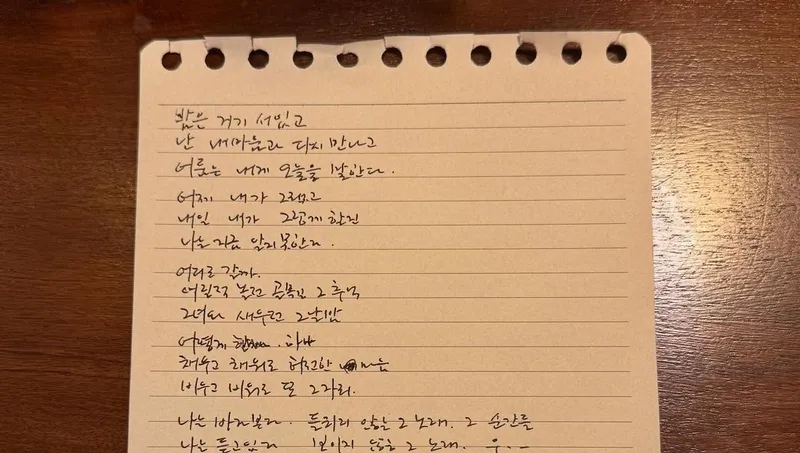 밤은 거기 서있고
난 내마음과 다시 만나고
어둠은 내게 오늘을 말한다.
어제 내가 그랬고
내일 내가 그렇게 한건
나는 지금 알지 못한다.
어디로 갈까.
어릴적 놀던 골목길 그 추억
그녀와 새우던 그날밤
어떻게
채우고 채워도 허전한 마음
비우고 비워도 또 그자리.
나는 바라본다. 들리지 않는 그 노래. 그 순간을
나는 듣고있다 보이지 않는 그 노래. 우..